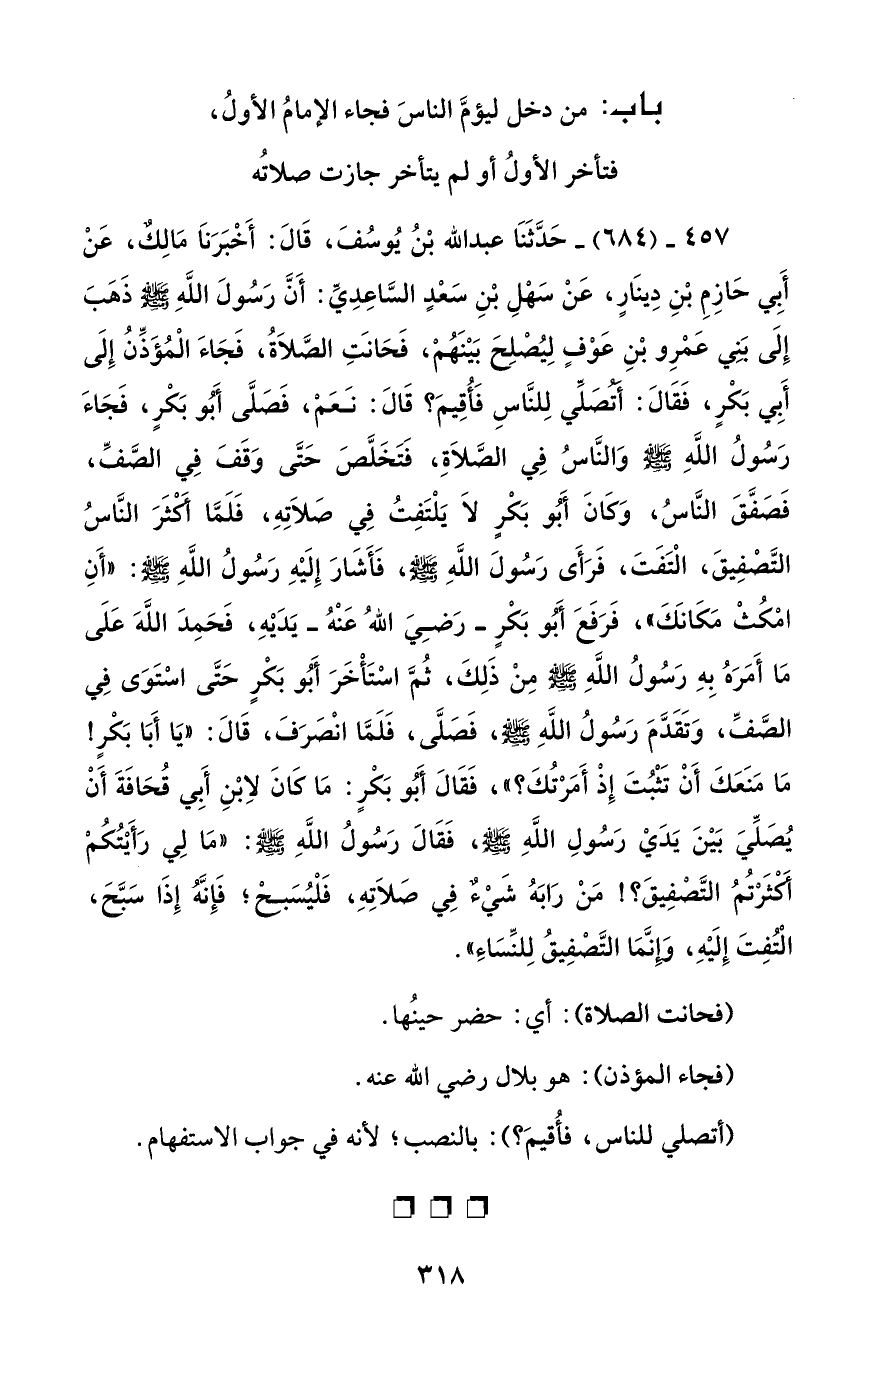 باب: من دخل ليؤمَّ الناسَ فجاء الإمامُ الأولُ،
فتأخر الأولُ أو لم يتأخر جازت صلاتُه
٤٥٧ ـ (٦٨٤) ـ حَدَّثَنَا عبدالله بْنُ يُوسُفَ، قَالَ: أَخْبَرَنَا مَالِكٌ، عَنْ
أَبِي حَازِمِ بْنِ دِينَارٍ، عَنْ سَهْلِ بْنِ سَعْدٍ السَّاعِدِيِّ: أَنَّ رَسُولَ اللَّهِ ﷺ ذَهَبَ
إِلَى بَنِي عَمْرِو بْنِ عَوْفٍ لِيُصْلِحَ بَيْنَهُمْ، فَحَانَتِ الصَّلَاةُ، فَجَاءَ الْمُؤَذِّنُ إِلَى
أَبِي بَكْرٍ، فَقَالَ: أَتُصَلِّي لِلنَّاسِ فَأُقِيمَ؟ قَالَ: نَعَمْ، فَصَلَّى أَبُو بَكْرٍ، فَجَاءَ
رَسُولُ اللَّهِ ﷺ وَالنَّاسُ فِي الصَّلَاةِ، فَتَخَلَّصَ حَتَّى وَقَفَ فِي الصَّفِّ،
فَصَفَّقَ النَّاسُ، وَكَانَ أَبُو بَكْرٍ لَا يَلْتَفِتُ فِي صَلَاتِهِ، فَلَمَّا أَكْثَرَ النَّاسُ
التَّصْفِيقَ، الْتَفَتَ، فَرَأَى رَسُولَ اللَّهِ ﷺ، فَأَشَارَ إِلَيْهِ رَسُولُ اللَّهِ ﷺ: «أَنِ
امْكُثْ مَكَانَكَ»، فَرَفَعَ أَبُو بَكْرٍ ـ رَضِيَ اللهُ عَنْهُ ـ يَدَيْهِ، فَحَمِدَ اللَّهَ عَلَى
مَا أَمَرَهُ بِهِ رَسُولُ اللَّهِ ﷺ مِنْ ذَلِكَ، ثُمَّ اسْتَأْخَرَ أَبُو بَكْرٍ حَتَّى اسْتَوَى فِي
الصَّفِّ، وَتَقَدَّمَ رَسُولُ اللَّهِ ﷺ، فَصَلَّى، فَلَمَّا انْصَرَفَ، قَالَ: «يَا أَبَا بَكْرٍ!
مَا مَنَعَكَ أَنْ تَثْبُتَ إِذْ أَمَرْتُكَ؟»، فَقَالَ أَبُو بَكْرٍ: مَا كَانَ لِابْنِ أَبِي قُحَافَةَ أَنْ
يُصَلِّيَ بَيْنَ يَدَيْ رَسُولِ اللَّهِ ﷺ، فَقَالَ رَسُولُ اللَّهِ ﷺ: «مَا لِي رَأَيْتُكُمْ
أَكْثَرْتُمُ التَّصْفِيقَ؟! مَنْ رَابَهُ شَيْءٌ فِي صَلَاتِهِ، فَلْيُسَبِحْ؛ فَإِنَّهُ إِذَا سَبَّحَ،
الْتُفِتَ إِلَيْهِ، وَإِنَّمَا التَّصْفِيقُ لِلنِّسَاءِ».
(فحانت الصلاة): أي: حضر حينُها.
(فجاء المؤذن): هو بلال رضي الله عنه.
(أتصلي للناس، فأُقيمَ؟): بالنصب؛ لأنه في جواب الاستفهام.
٣١٨